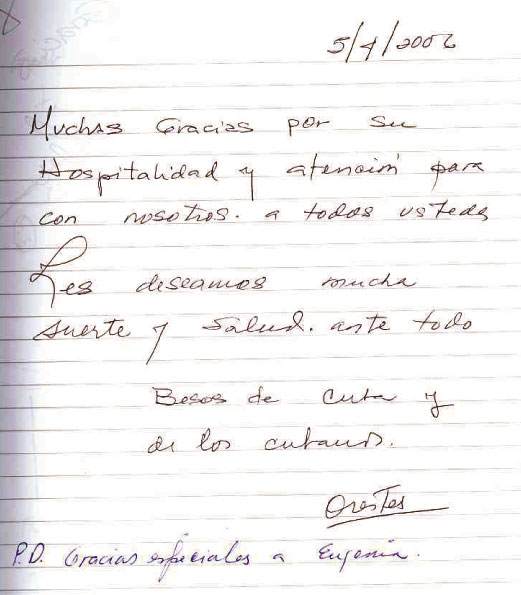 5/4/2006
Muchas Gracias por su
Hospitalidad y atención para
con nosotros. a todos ustedes
Les deseamos mucha
suerte y salud. ante todo
Besos de cuba y
de los cubanos.
Orestes
P.D. Gracias especiales a Eugenia.